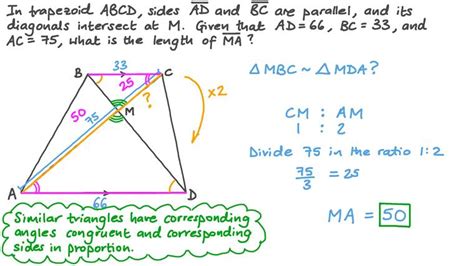 In trapezoid ABCD, sides AD and BC are parallel, and its
diagonals intersect at M. Given that AD=66, BC = 33, and
AC = 75, what is the length of MA?
33
B
C
25
?
M
50
75
×2
A
66
D
△MBC ~ △MDA?
CM : AM
1 : 2
Divide 75 in the ratio 1:2
75/3 = 25
MA = 50
Similar triangles have corresponding
angles congruent and corresponding
sides in proportion.